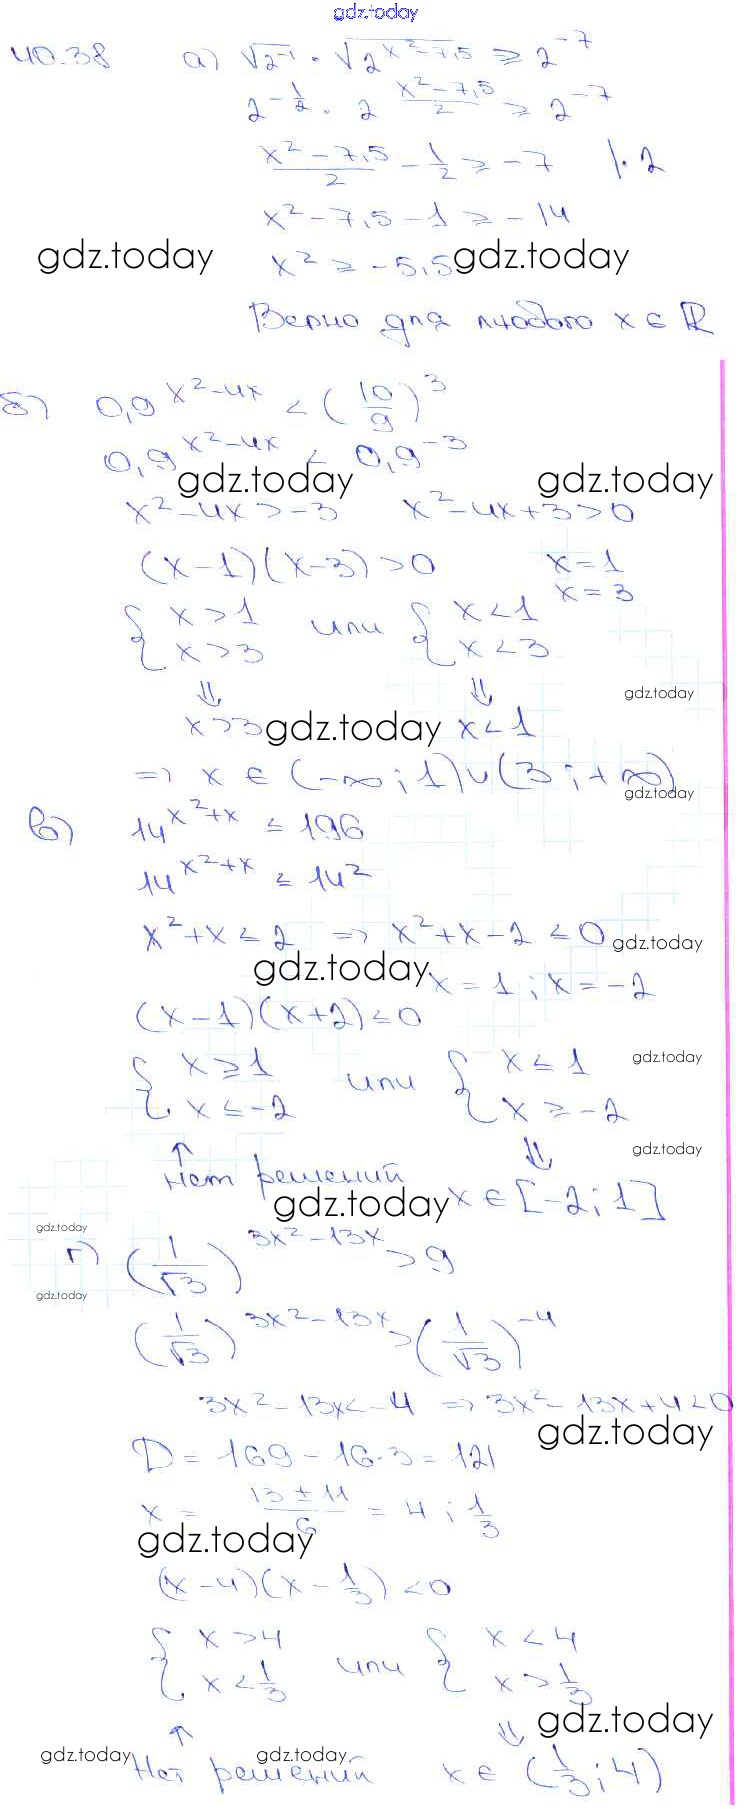 gdz.today
40.38 а) √2⁻¹ · √2^(x²-7,5) ≥ 2⁻⁷
2^(-1/2) · 2^((x²-7,5)/2) ≥ 2⁻⁷
(x²-7,5)/2 - 1/2 ≥ -7 |·2
x² - 7,5 - 1 ≥ -14
gdz.today x² ≥ -5,5 gdz.today
Верно для любого x ∈ ℝ
б) 0,9^(x²-4x) < (10/9)³
0,9^(x²-4x) < 0,9⁻³
gdz.today gdz.today
x²-4x > -3 x²-4x+3>0
(x-1)(x-3)>0 x=1
x=3
{ x>1 или { x<1
x>3 x<3
⇓ ⇓ gdz.today
x>3 gdz.today x<1
=> x ∈ (-∞;1)∪(3;+∞)
gdz.today
в) 14^(x²+x) ≤ 196
14^(x²+x) ≤ 14²
x²+x ≤ 2 => x²+x-2 ≤ 0 gdz.today
gdz.today x=1; x=-2
(x-1)(x+2)≤0
{ x≥1 или { x≤1 gdz.today
x≤-2 x≥-2
↑ ⇓ gdz.today
Нет решений
gdz.today x∈[-2;1]
gdz.today
г) (1/√3)^(3x²-13x) > 9
gdz.today
(1/√3)^(3x²-13x) > (1/√3)⁻⁴
3x²-13x<-4 => 3x²-13x+4<0
gdz.today
D = 169-16·3 = 121
x = (13±11)/6 = 4; 1/3
gdz.today
(x-4)(x-1/3)<0
{ x>4 или { x<4
x<1/3 x>1/3
↑ ⇓ gdz.today
gdz.today gdz.today
Нет решений x∈(1/3;4)